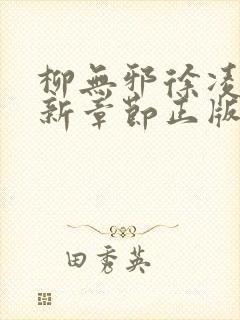 柳無邪徐凌
新章節正版
田秀英